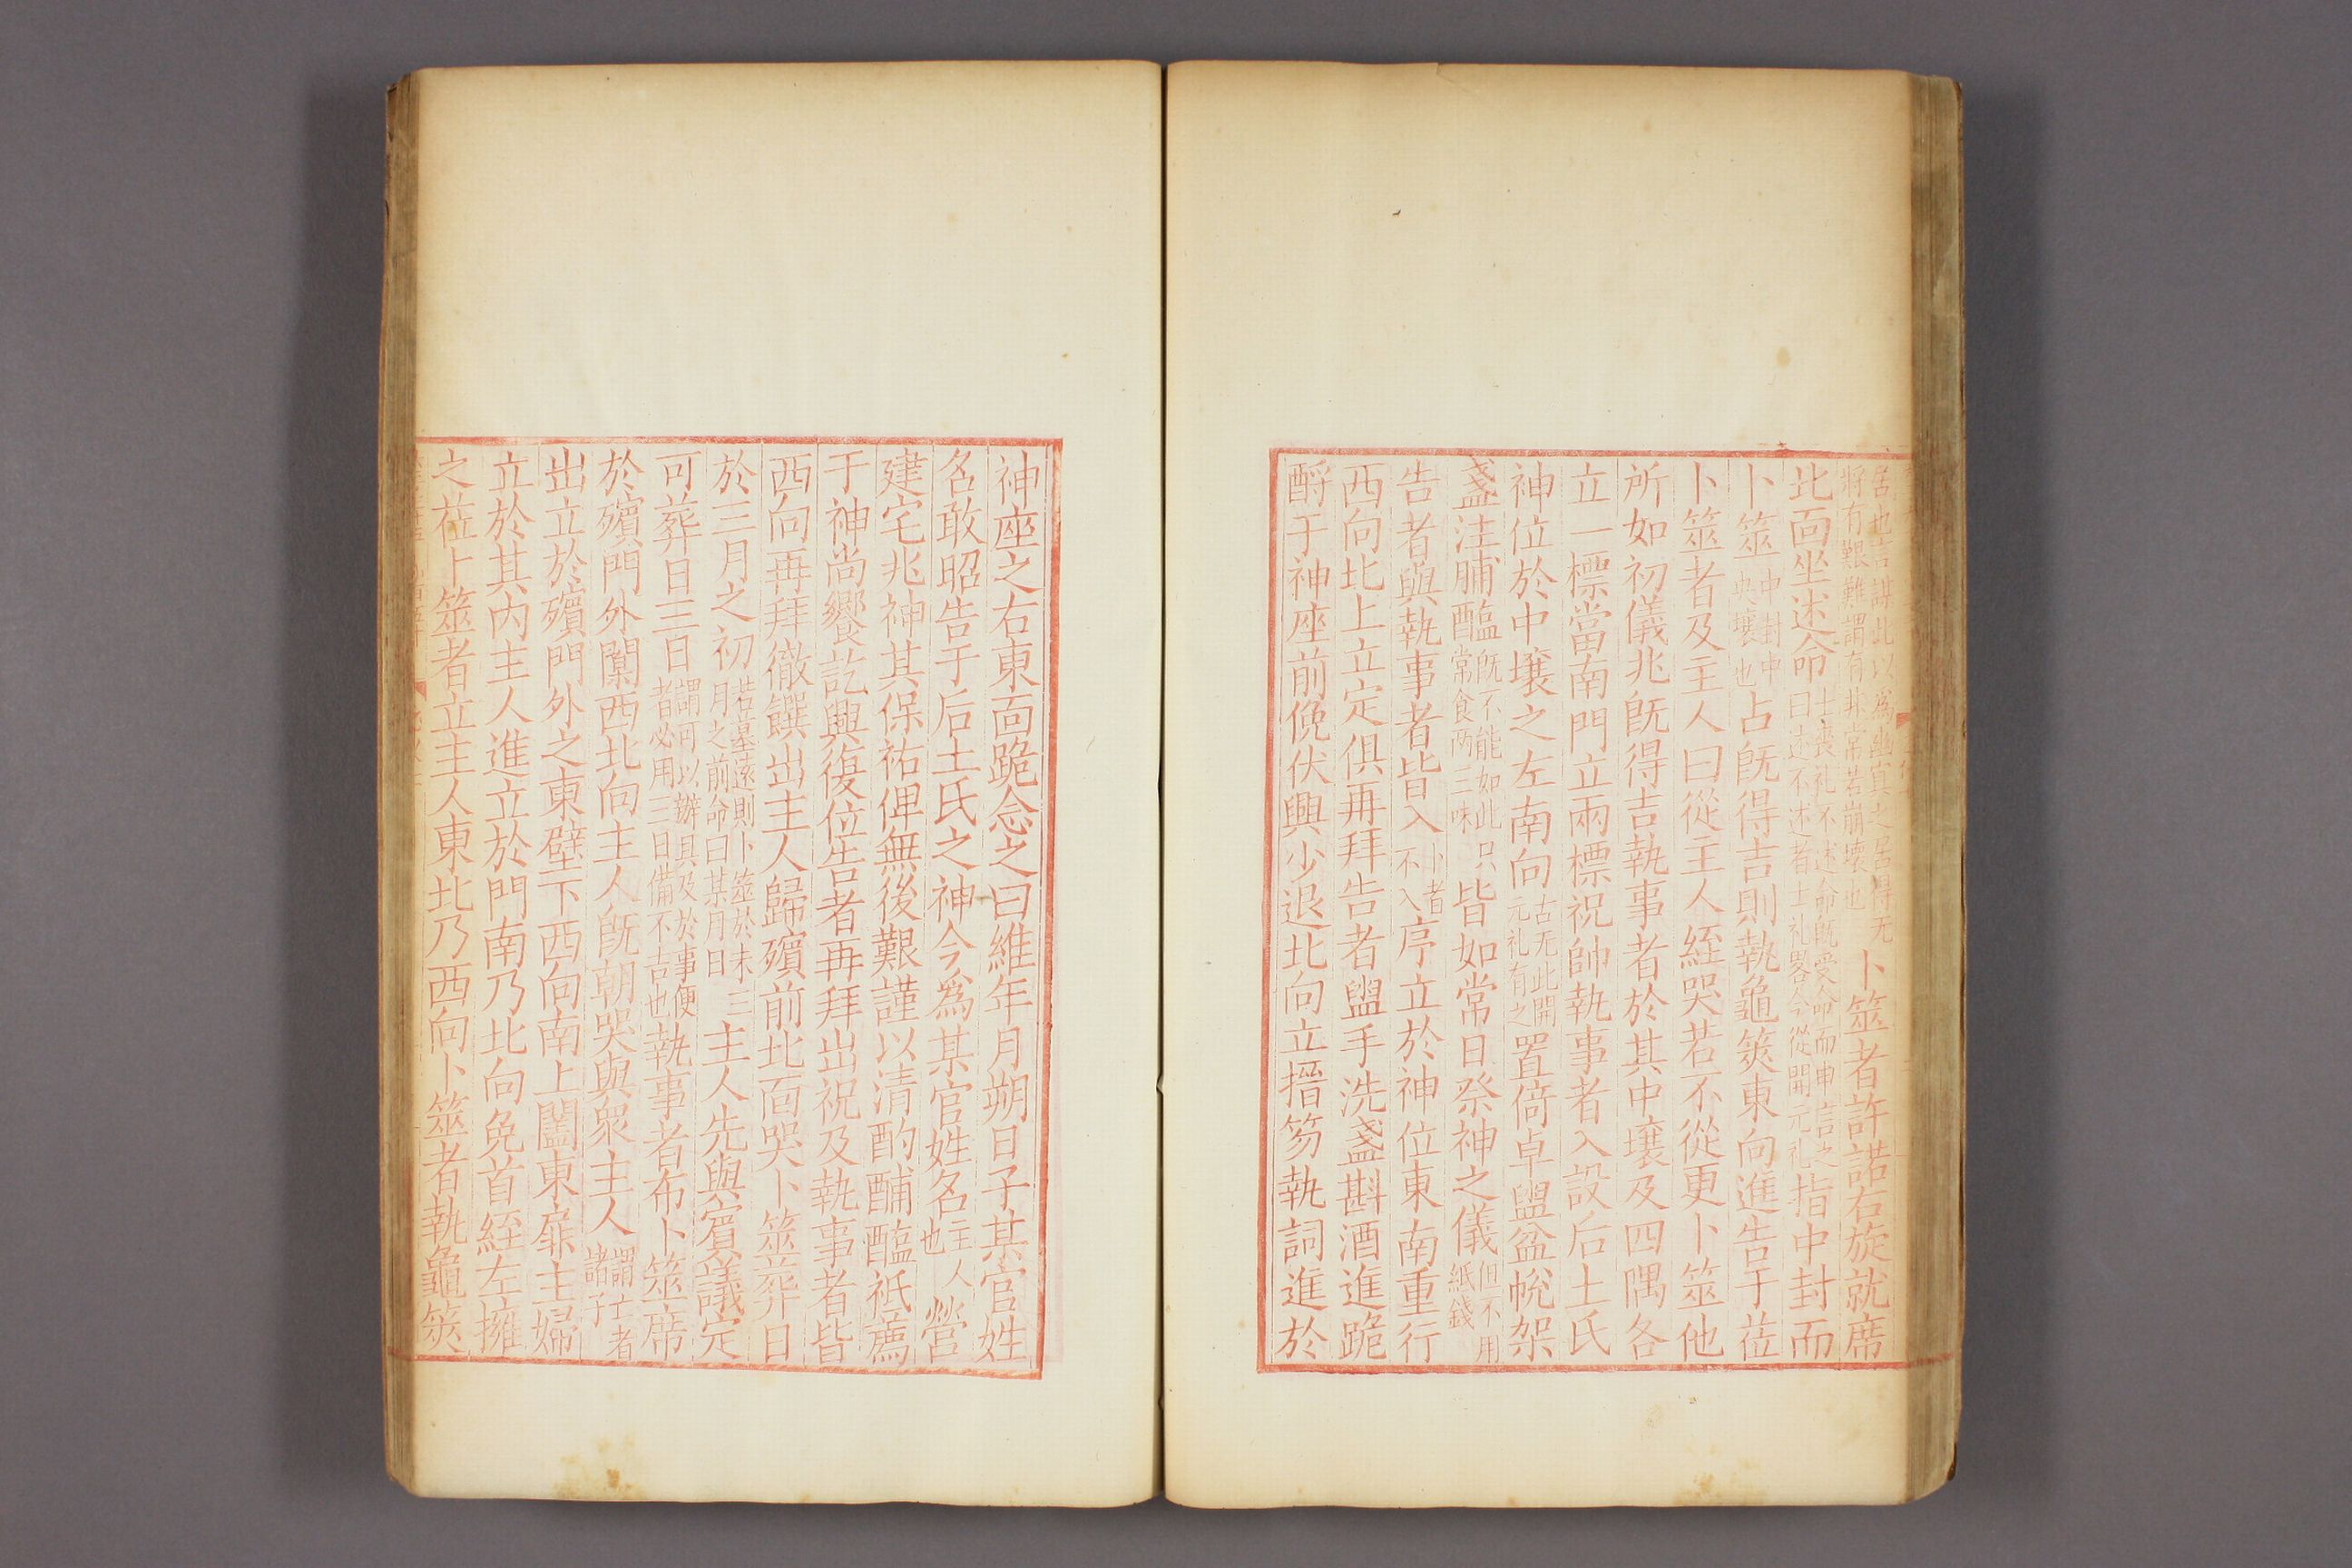 居也言謀此以為幽冥之居得无
將有艱難謂有非常若崩壞也
卜筮者許諾右旋就席
北面坐述命
士喪礼不述命既受命而申言之
曰述不述者士礼畧今從開元礼
指中封而
卜筮
中封中
央壤也
占旣得吉則執龜筴東向進告于莅
卜筮者及主人曰從主人絰哭若不從更卜筮他
所如初儀兆旣得吉執事者於其中壤及四隅各
立一標當南門立兩標祝帥執事者入設后土氏
神位於中壤之左南向
古无此開
元礼有之
置倚卓盥盆帨架
盞注脯醢
旣不能如此只
常食两三味
皆如常日祭神之儀
但不用
紙錢
告者與執事者皆入
卜者
不入
序立於神位東南重行
西向北上立定俱再拜告者盥手洗盞斟酒進跪
酹于神座前俛伏興少退北向立搢笏執詞進於
神座之右東面跪念之曰維年月朔日子某官姓
名敢昭告于后土氏之神今爲某官姓名
主人
也
營
建宅兆神其保祐俾無後艱謹以清酌酺醢祗薦
于神尚饗訖興復位告者再拜出祝及執事者皆
西向再拜徹饌出主人歸殯前北面哭卜筮葬日
於三月之初
若墓遠則卜筮於未三
月之前命曰某月日
主人先與賓議定
可葬日三日
謂可以辦具及於事便
者必用三日備不吉也
執事者布卜筮席
於殯門外闑西北向主人旣朝哭與衆主人
謂亡者
諸子
出立於殯門外之東壁下西向南上闔東扉主婦
立於其内主人進立於門南乃北向免首絰左擁
之莅卜筮者立主人東北乃西向卜筮者執龜筴